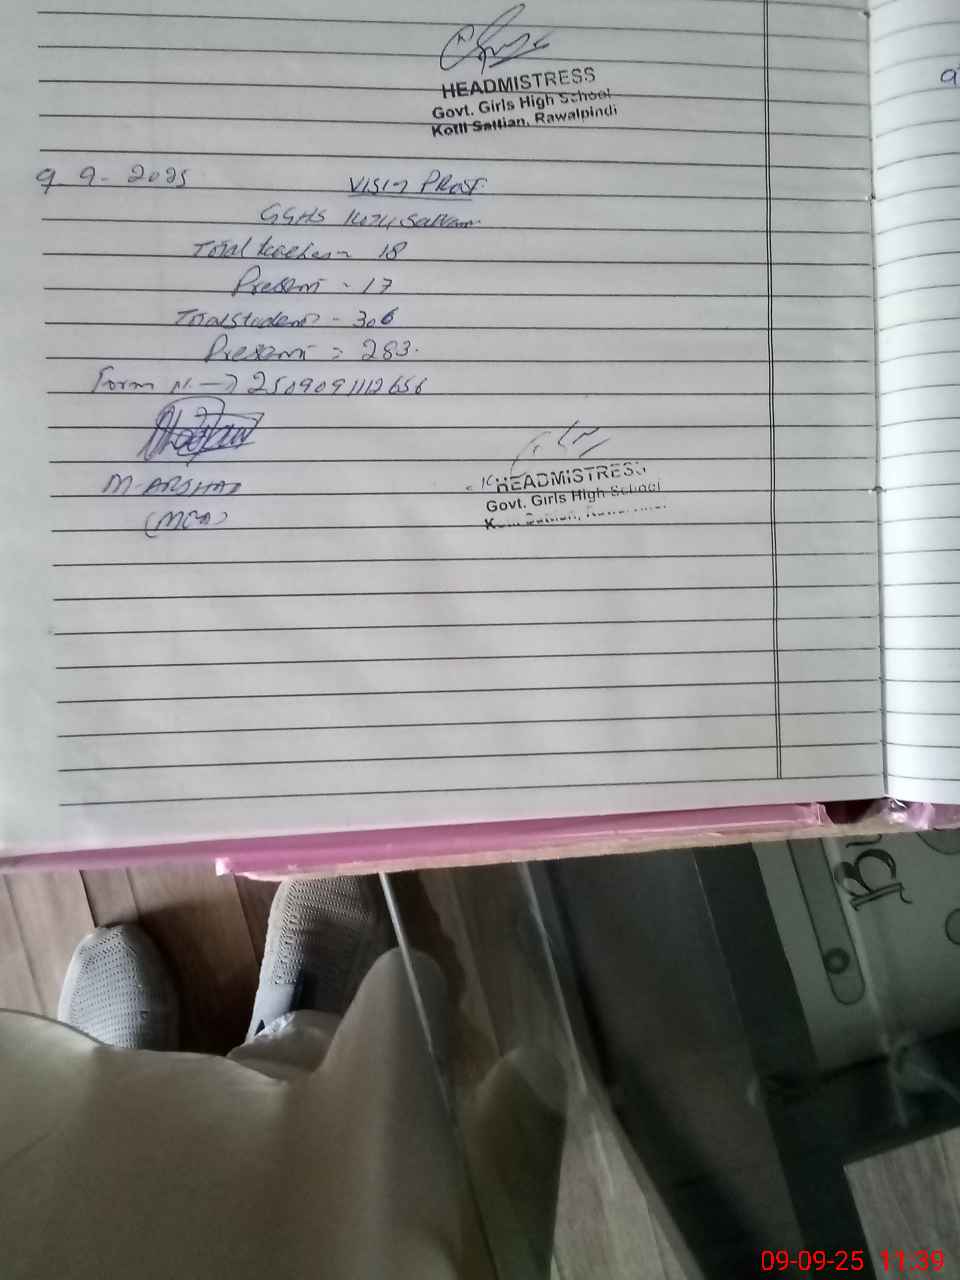 HEADMISTRESS
Govt. Girls High School
Kotli Sattian, Rawalpindi
9-9-2025
GGHS Kotli Sattian
Total teacher - 18
Present - 17
Total student - 306
Present = 283.
Form N. → 2509091112656
M-ARSHAD
(MEA)
HEADMISTRESS
Govt. Girls High School
09-09-25 11:39